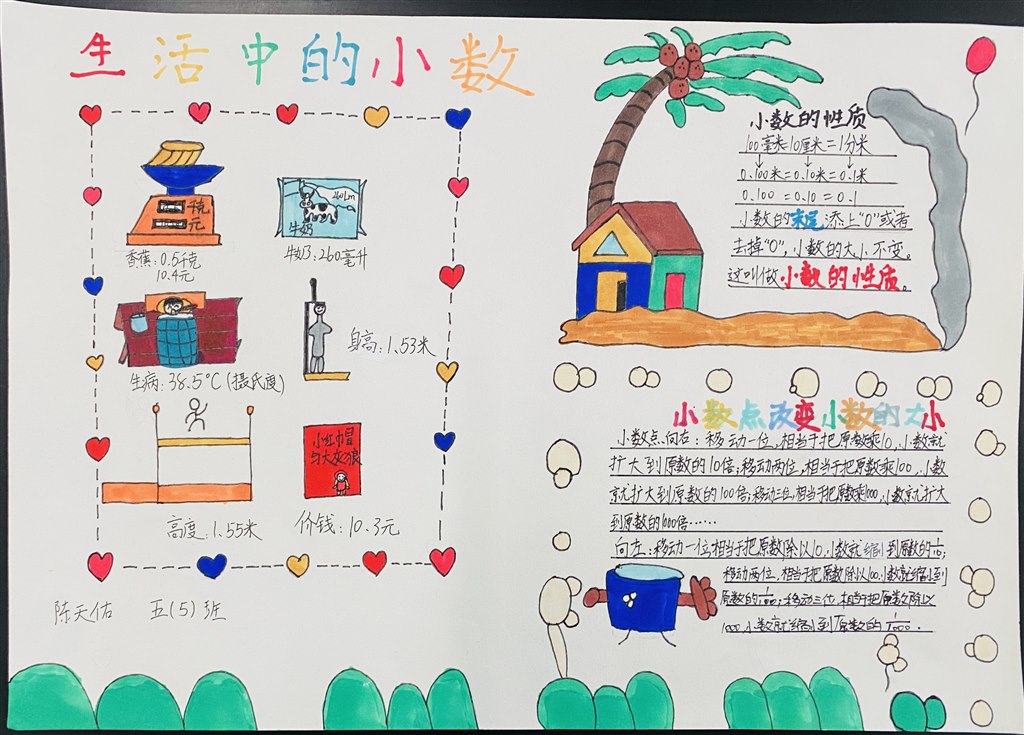 生活中的小数
千克
元
香蕉：0.5千克
10.4元
牛奶
牛奶：260毫升
身高：1.53米
生病：38.5°C（摄氏度）
小红帽
与大灰狼
高度：1.55米
价钱：10.3元
陈天佑 五（5）班
小数的性质
100毫米=10厘米=1分米
0.100米=0.10米=0.1米
0.100=0.10=0.1
小数的末尾添上“0”或者
去掉“0”，小数的大小不变。
这叫做小数的性质。
小数点改变小数的大小
小数点向右：移动一位，相当于把原数乘10，小数就
扩大到原数的10倍；移动两位，相当于把原数乘100，小数
就扩大到原数的100倍；移动三位，相当于把原数乘1000，小数就扩大
到原数的1000倍……
向左：移动一位，相当于把原数除以10，小数就缩小到原数的1/10；
移动两位，相当于把原数除以100，小数就缩小到
原数的1/100；移动三位，相当于把原数除以
1000，小数就缩小到原数的1/1000.